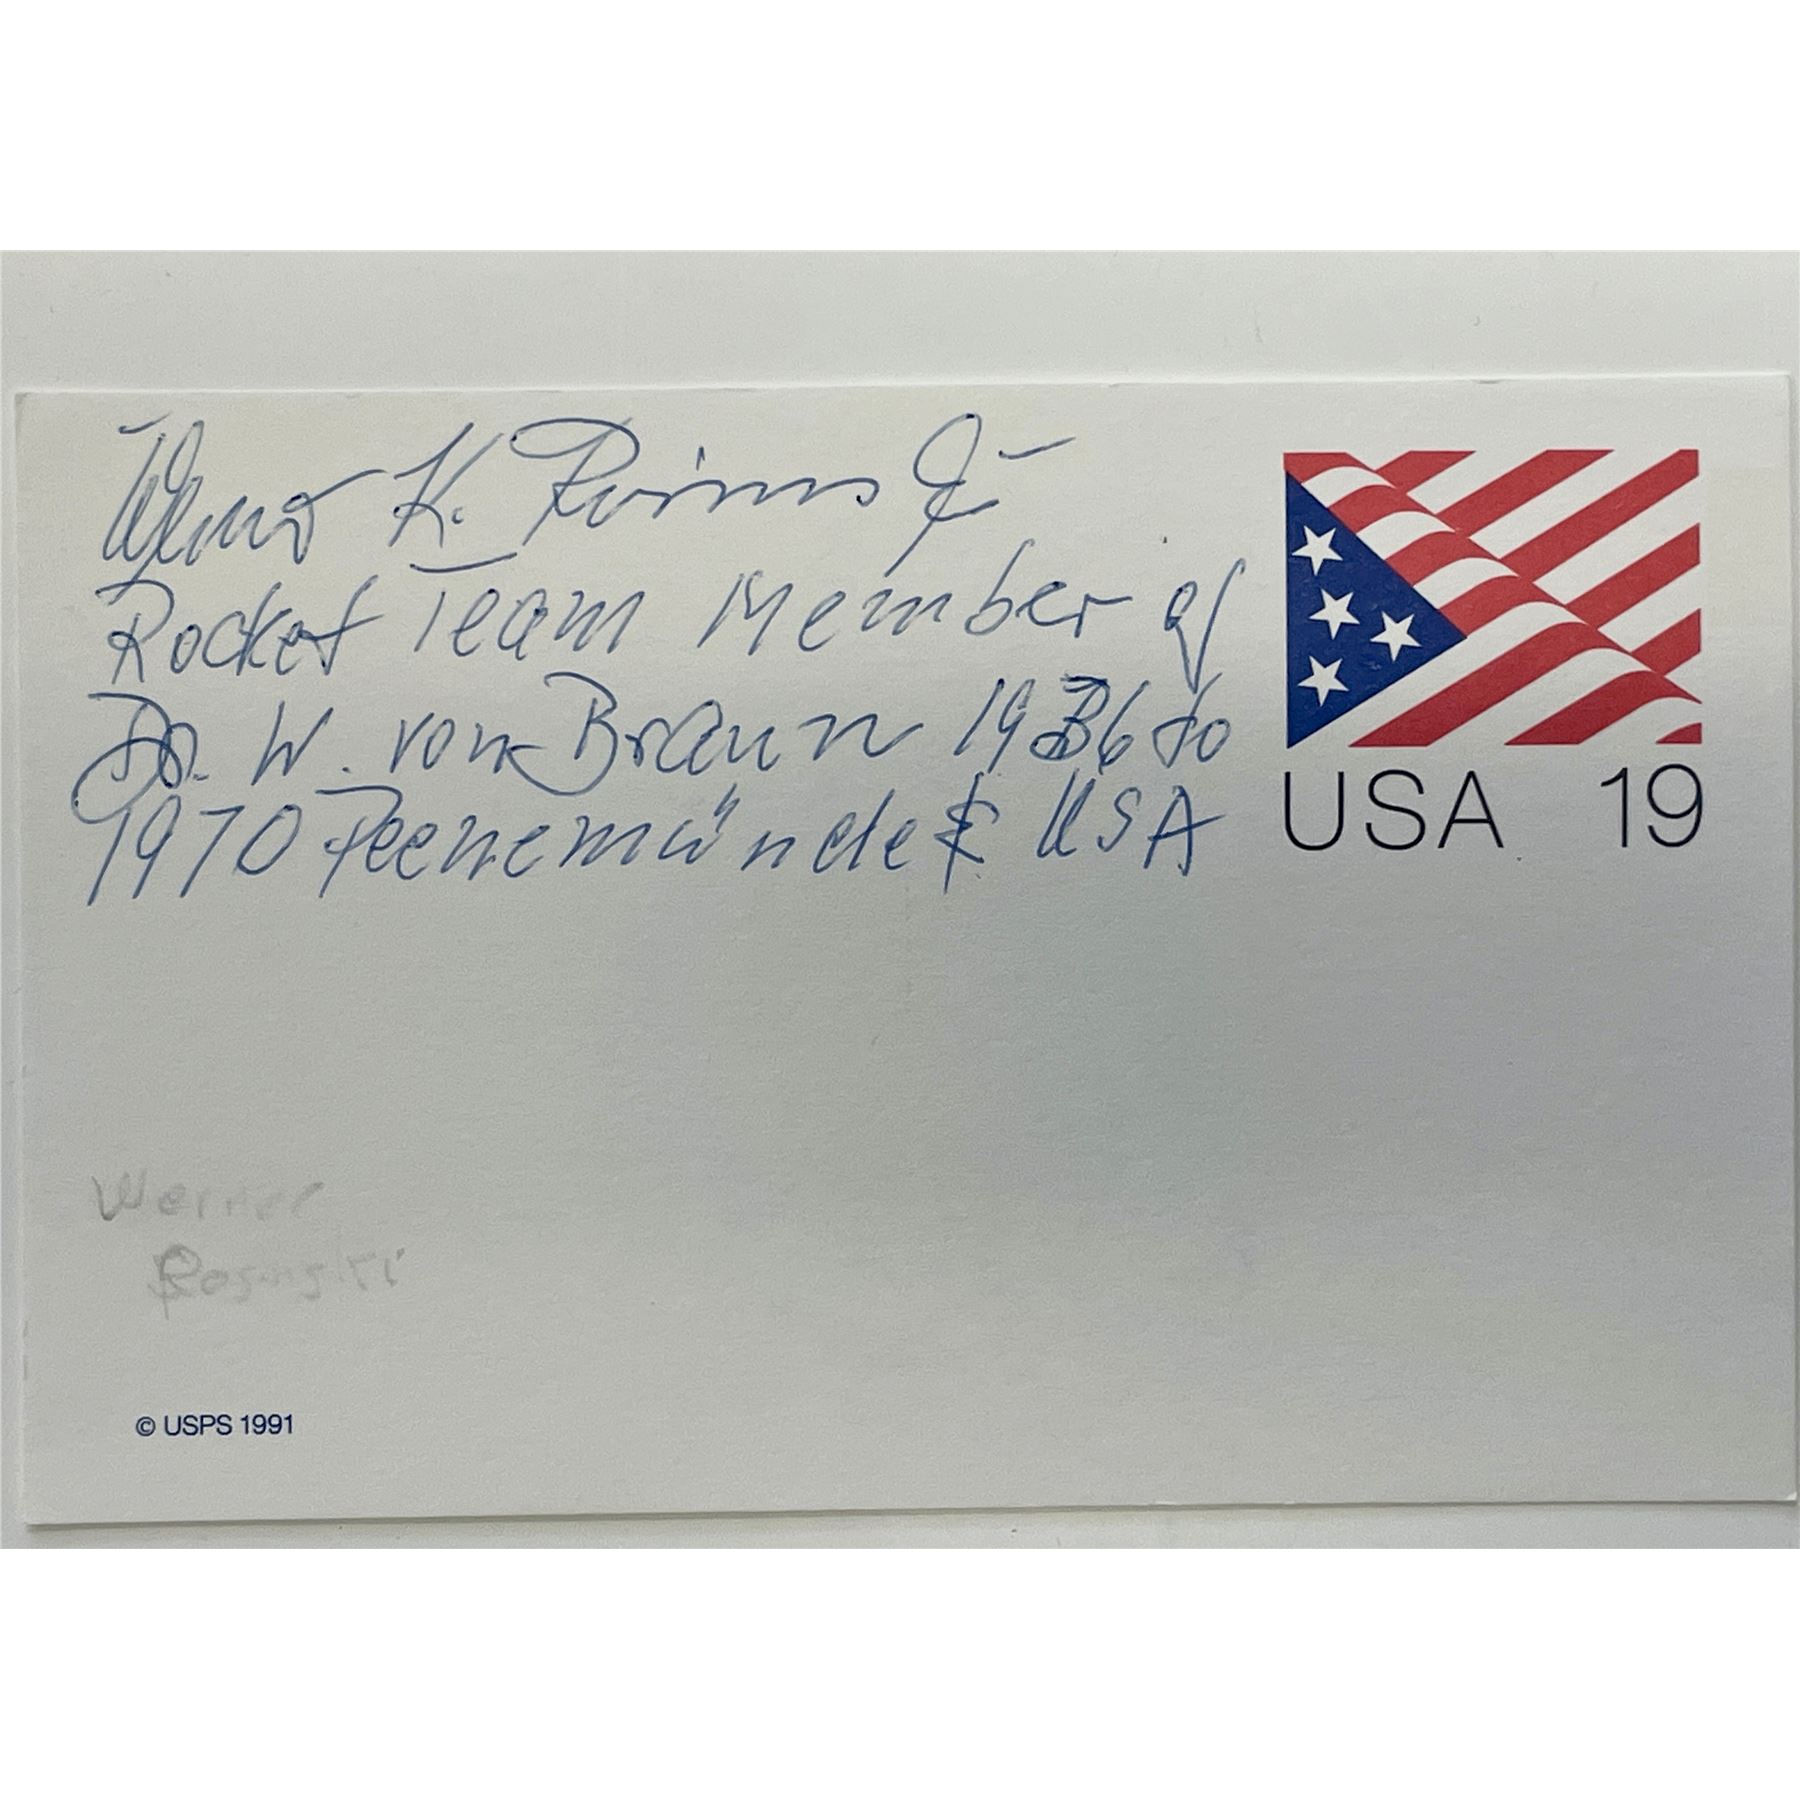 Werner K. Rosinski
Rocket Team Member of
Dr. W. von Braun 1936 to
1970 Peenemünde & USA
USA 19
Werner
© USPS 1991